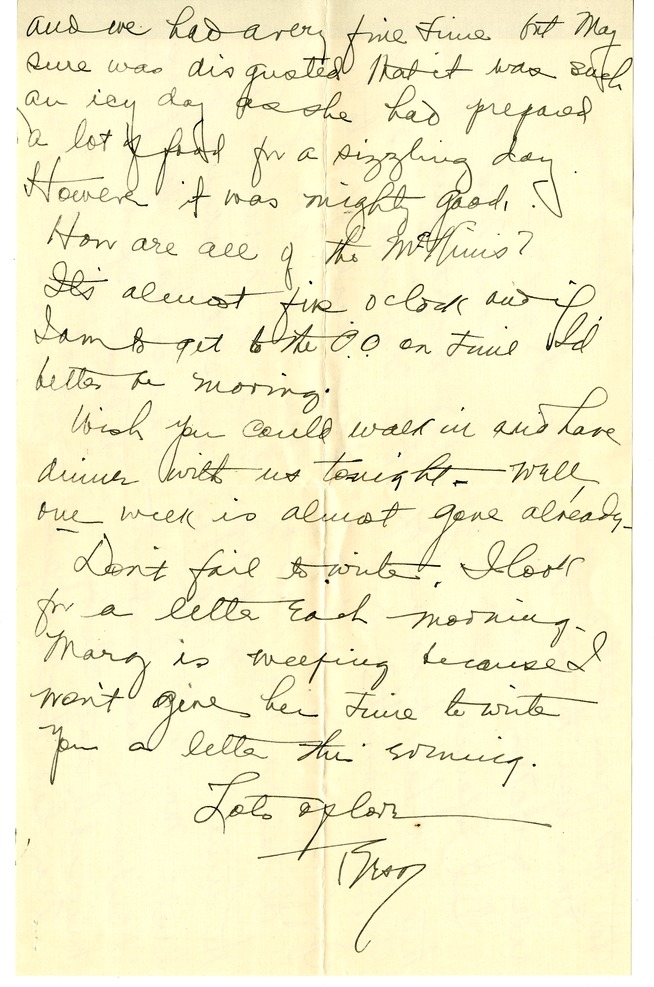 and we had a very fine time but May
sure was disgusted that it was such
an icy day as she had prepared
a lot of food for a sizzling day.
However it was mighty good.
How are all of the McKims?
It's almost five o'clock and if
I am to get to the P.O. on time I'd
better be moving.
Wish you could walk in and have
dinner with us tonight - Well,
one week is almost gone already -
Don't fail to write. I look
for a letter each morning -
Marg is weeping because I
won't give her time to write
you a letter this evening.
Lots of love
Bess